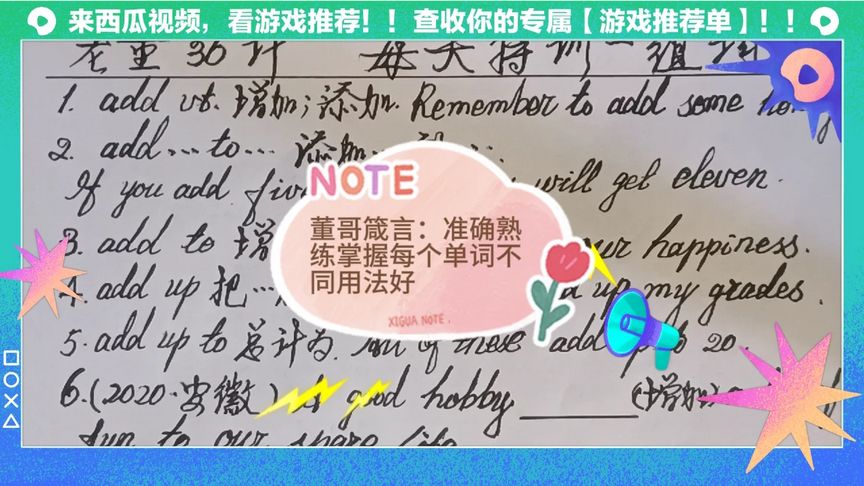 来西瓜视频，看游戏推荐！！查收你的专属【游戏推荐单】！！
老董36计 每天特训一组词
1. add vt. 增加；添加. Remember to add some
2. add…to… 添加
If you add five will get eleven.
3. add to 增 our happiness.
4. add up 把… up my grades.
5. add up to 总计为. All of these add up to 20.
6.(2020·安徽) A good hobby ______ (增加)
fun to our spare life
NOTE
董哥箴言：准确熟
练掌握每个单词不
同用法好
XIGUA NOTE.